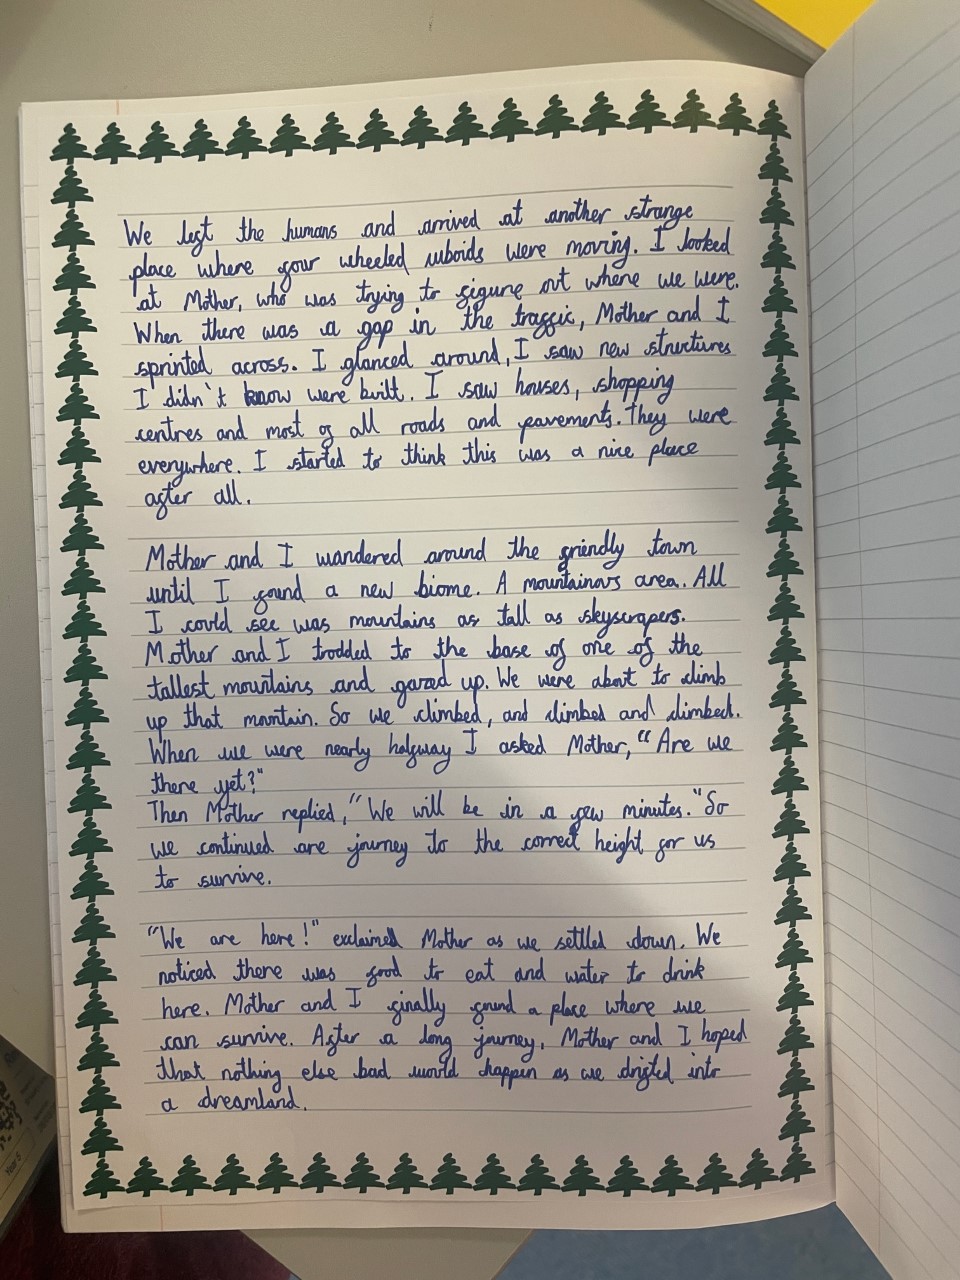 We left the humans and arrived at another strange
place where four wheeled cuboids were moving. I looked
at Mother, who was trying to figure out where we were.
When there was a gap in the traffic, Mother and I
sprinted across. I glanced around, I saw new structures
I didn't know were built. I saw houses, shopping
centres and most of all roads and pavements. They were
everywhere. I started to think this was a nice place
after all.
Mother and I wandered around the friendly town
until I found a new biome. A mountainous area. All
I could see was mountains as tall as skyscrapers.
Mother and I trodded to the base of one of the
tallest mountains and gazed up. We were about to climb
up that mountain. So we climbed, and climbed and climbed.
When we were nearly halfway I asked Mother, "Are we
there yet?"
Then Mother replied, "We will be in a few minutes." So
we continued are journey to the correct height for us
to survive.
"We are here!" exclaimed Mother as we settled down. We
noticed there was food to eat and water to drink
here. Mother and I finally found a place where we
can survive. After a long journey, Mother and I hoped
that nothing else bad would happen as we drifted into
a dreamland.
Year 5